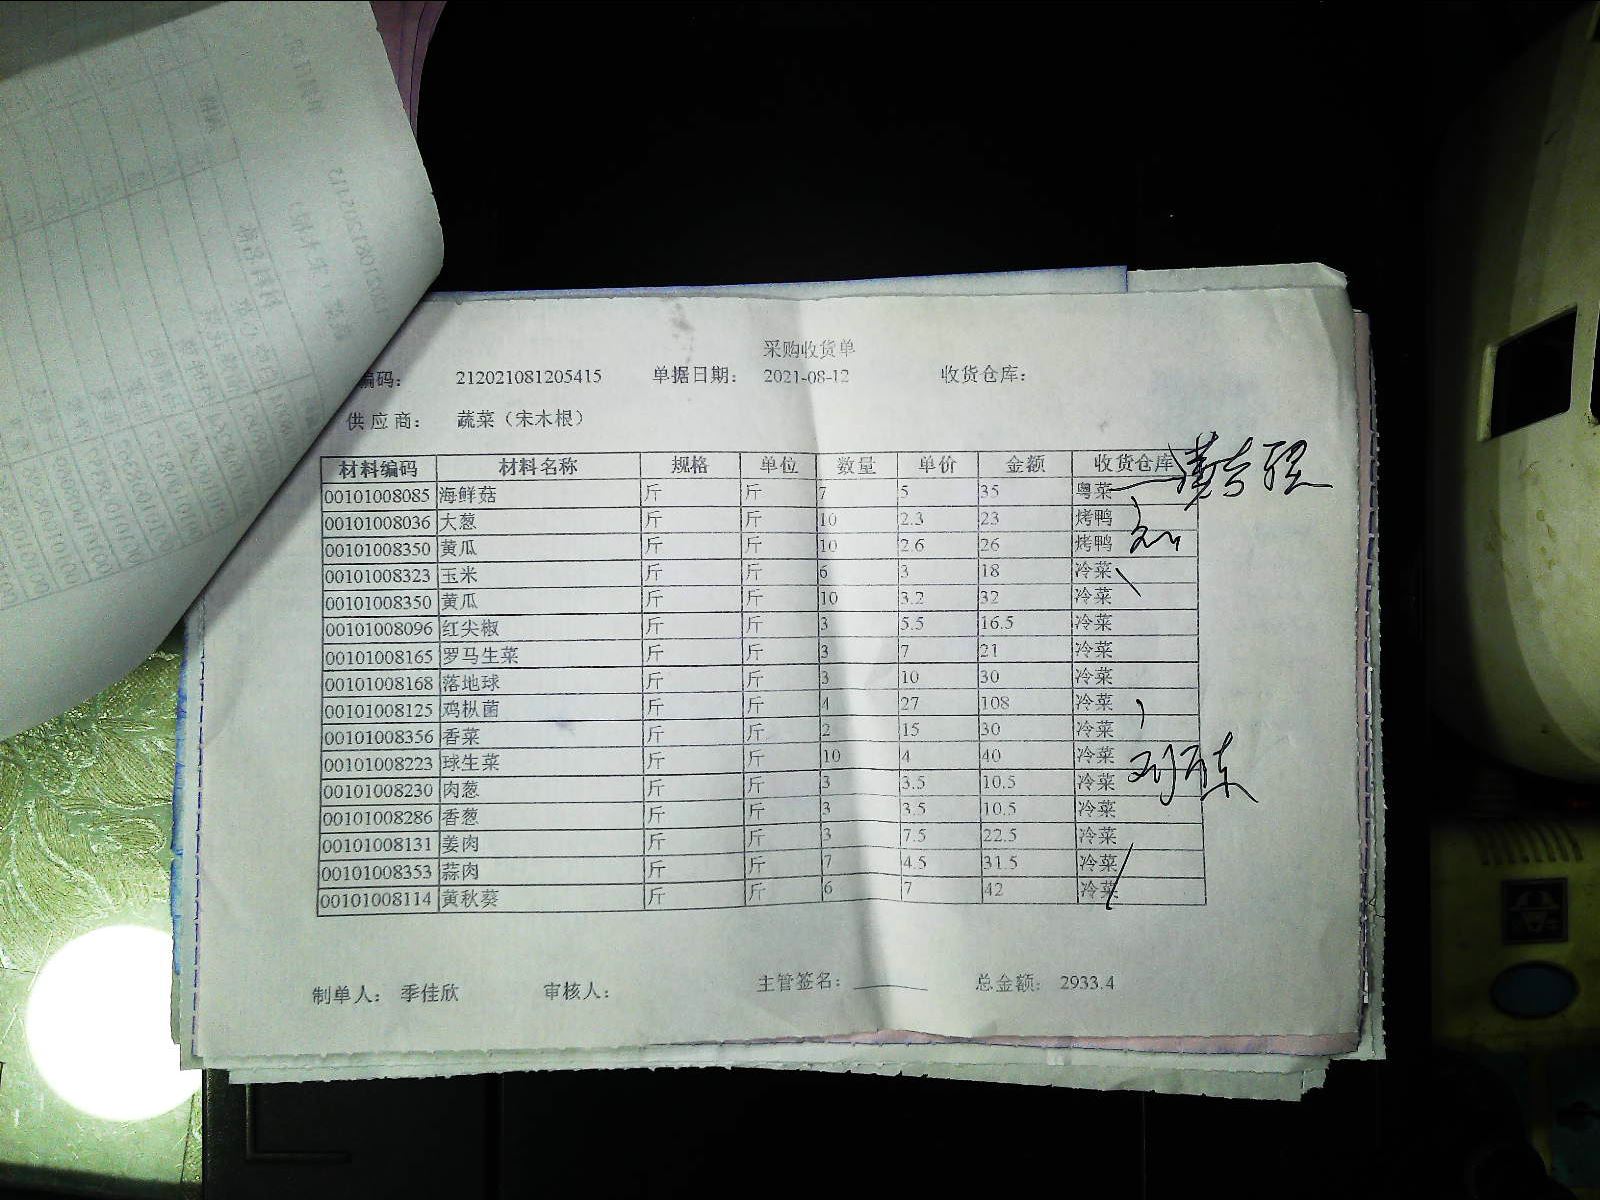 采购收货单
编码： 212021081205415 单据日期： 2021-08-12 收货仓库：
供应商： 蔬菜（宋木根）
材料编码 材料名称 规格 单位 数量 单价 金额 收货仓库
00101008085 海鲜菇 斤 斤 7 5 35 粤菜
00101008036 大葱 斤 斤 10 2.3 23 烤鸭
00101008350 黄瓜 斤 斤 10 2.6 26 烤鸭
00101008323 玉米 斤 斤 6 3 18 冷菜
00101008350 黄瓜 斤 斤 10 3.2 32 冷菜
00101008096 红尖椒 斤 斤 3 5.5 16.5 冷菜
00101008165 罗马生菜 斤 斤 3 7 21 冷菜
00101008168 落地球 斤 斤 3 10 30 冷菜
00101008125 鸡枞菌 斤 斤 4 27 108 冷菜
00101008356 香菜 斤 斤 2 15 30 冷菜
00101008223 球生菜 斤 斤 10 4 40 冷菜
00101008230 肉葱 斤 斤 3 3.5 10.5 冷菜
00101008286 香葱 斤 斤 3 3.5 10.5 冷菜
00101008131 姜肉 斤 斤 3 7.5 22.5 冷菜
00101008353 蒜肉 斤 斤 7 4.5 31.5 冷菜
00101008114 黄秋葵 斤 斤 6 7 42 冷菜
制单人： 季佳欣 审核人： 主管签名： 总金额： 2933.4